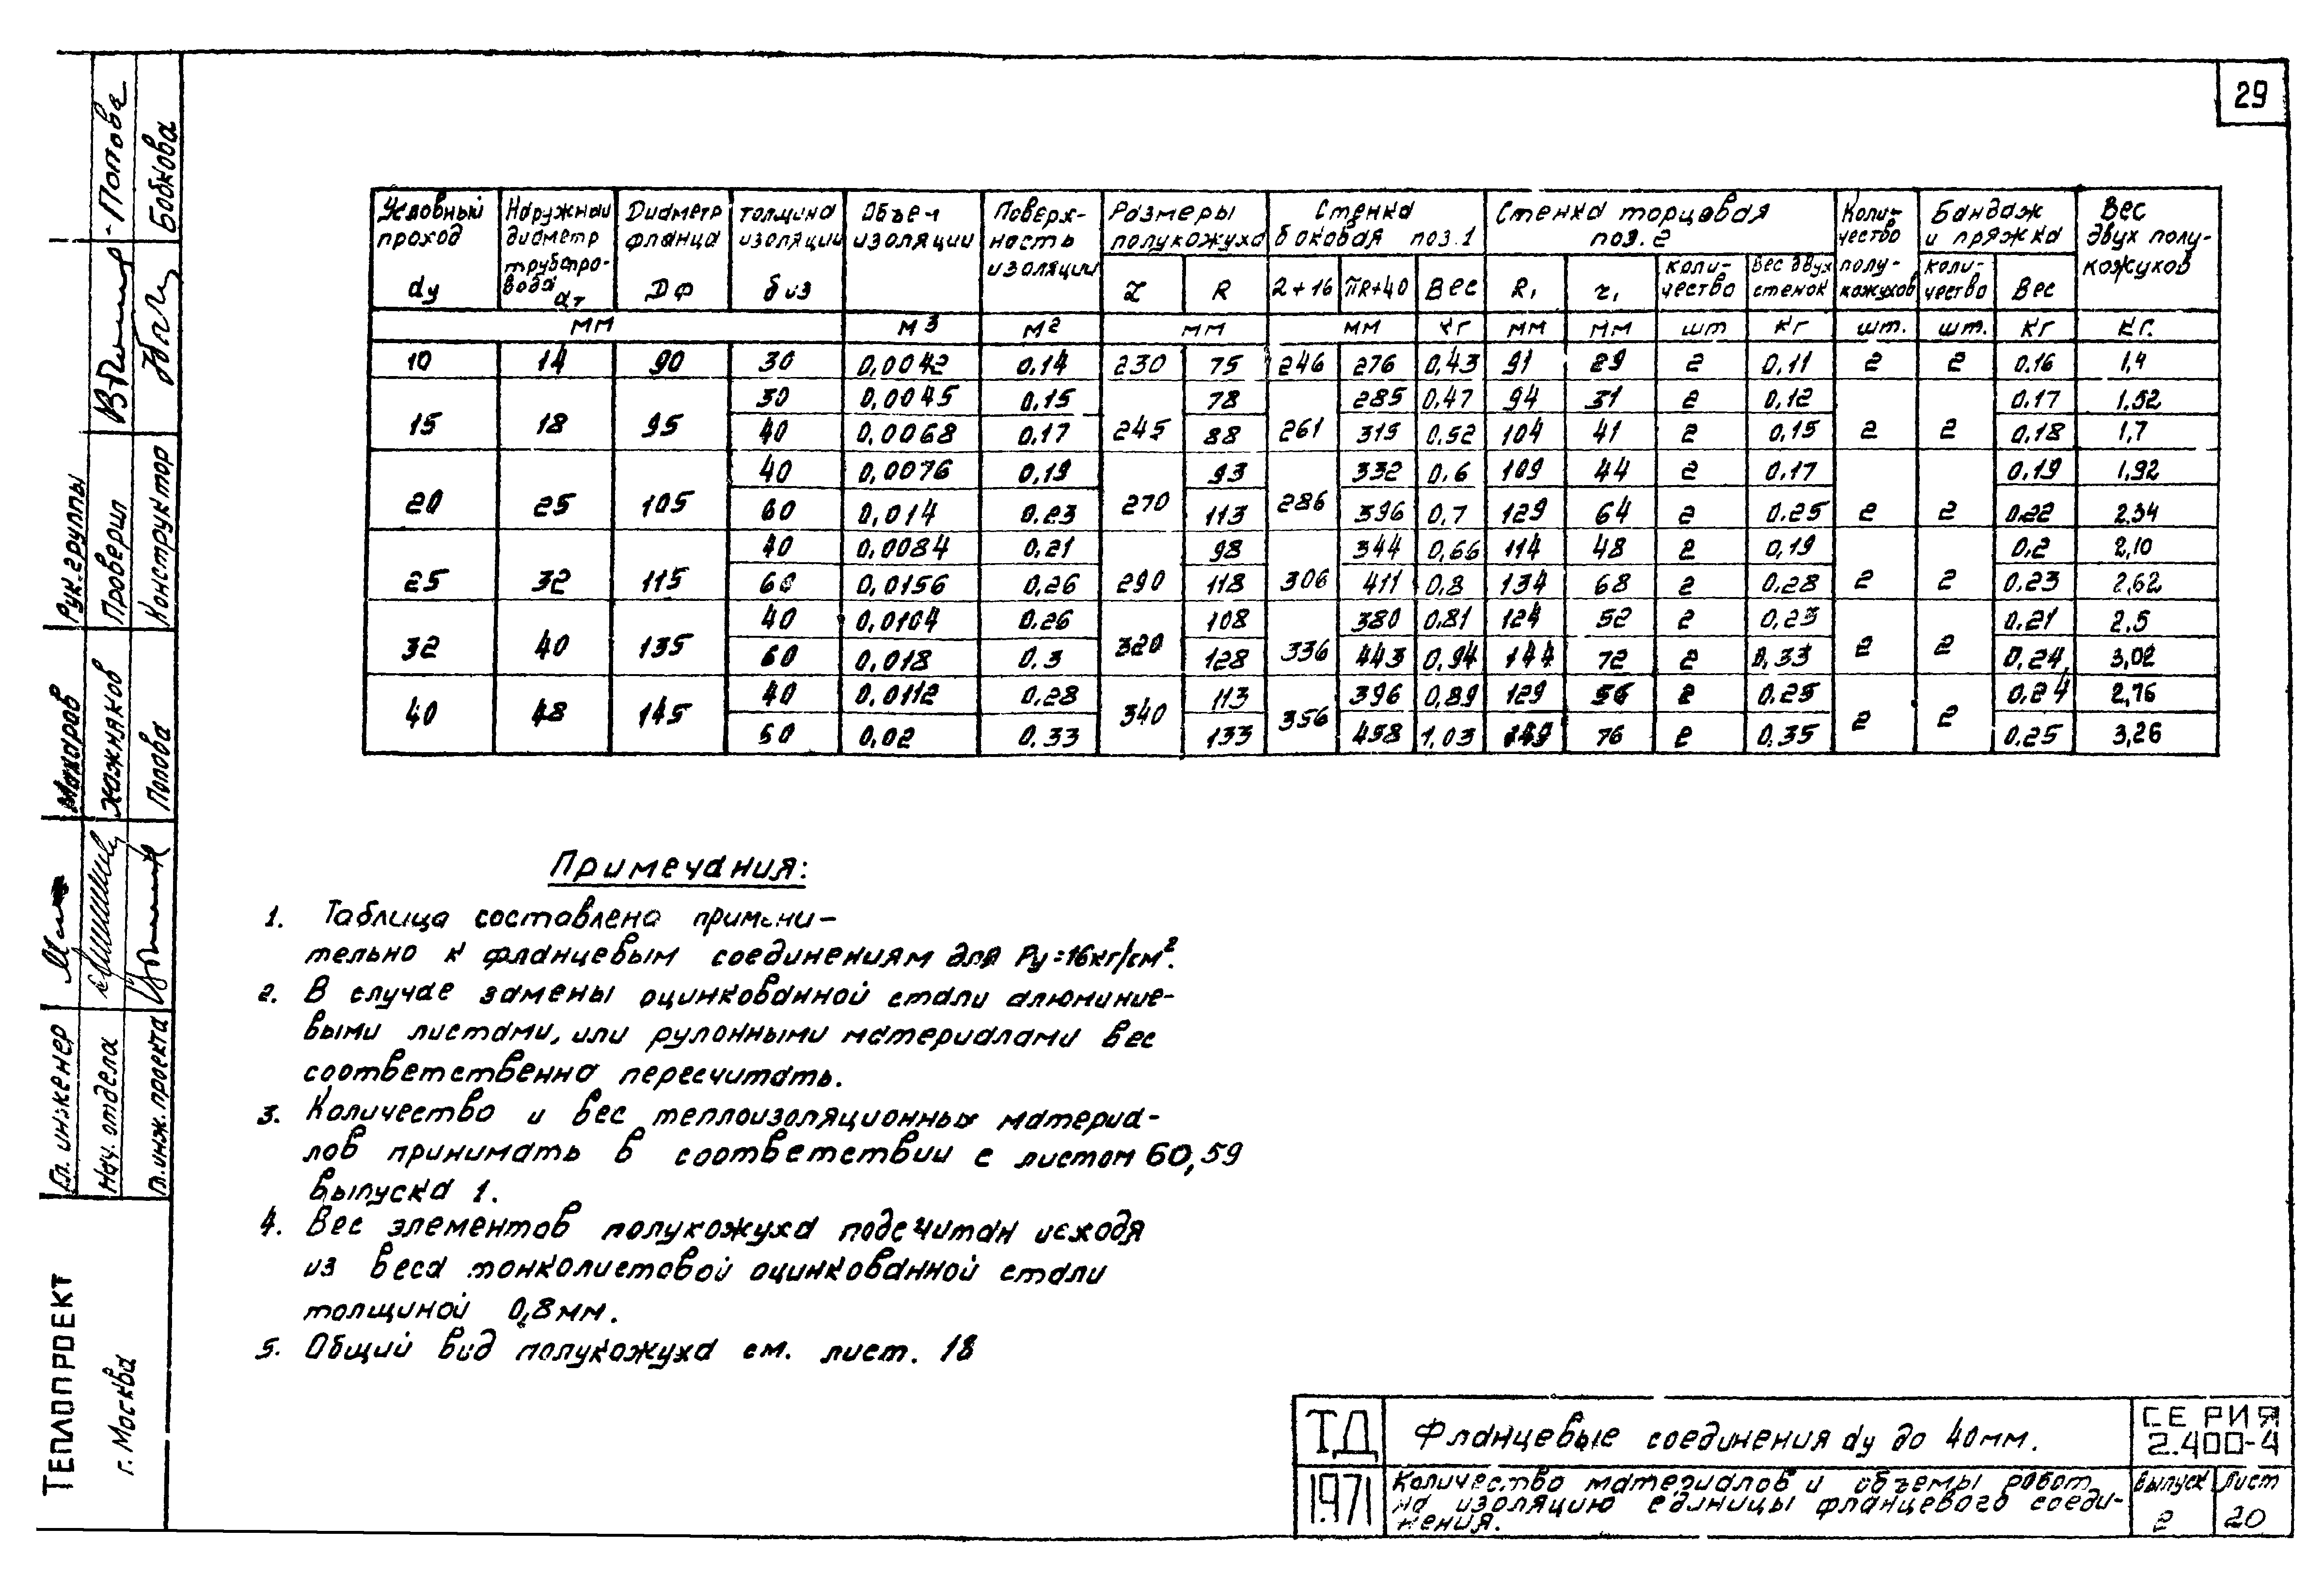 29
Условный проход dу
Наружный диаметр трубопровода dт
Диаметр фланца Дф
толщина изоляции δиз
Объем изоляции
Поверхность изоляции
Размеры полукожуха
Стенка боковая поз.1
Стенка торцовая поз. 2
Количество полукожухов
Бандаж и пряжка
Вес двух полукожухов
L R 2+16 πR+40 Вес R₁ r₁ количество Вес двух стенок количество Вес
мм м3 м2 мм мм кг мм мм шт кг шт. шт. кг кг.
10 14 90 30 0,0042 0,14 230 75 246 276 0,43 91 29 2 0,11 2 2 0,16 1,4
30 0,0045 0,15 78 285 0,47 94 31 2 0,12 0,17 1,52
15 18 95 245 261 2 2
40 0,0068 0,17 88 315 0,52 104 41 2 0,15 0,18 1,7
40 0,0076 0,19 93 332 0,6 109 44 2 0,17 0,19 1,92
20 25 105 270 286 2 2
60 0,014 0,23 113 396 0,7 129 64 2 0,25 0,22 2,34
40 0,0084 0,21 98 344 0,66 114 48 2 0,19 0,2 2,10
25 32 115 290 306 2 2
60 0,0156 0,26 118 411 0,8 134 68 2 0,28 0,23 2,62
40 0,0104 0,26 108 380 0,81 124 52 2 0,23 0,21 2,5
32 40 135 320 336 2 2
60 0,018 0,3 128 443 0,94 144 72 2 0,33 0,24 3,02
40 0,0112 0,28 113 396 0,89 129 56 2 0,25 0,24 2,76
40 48 145 340 356 2 2
60 0,02 0,33 133 458 1,03 149 76 2 0,35 0,25 3,26
Примечания:
1. Таблица составлена примени-
тельно к фланцевым соединениям для Ру=16кг/см².
2. В случае замены оцинкованной стали алюминие-
выми листами, или рулонными материалами вес
соответственно пересчитать.
3. Количество и вес теплоизоляционных материа-
лов принимать в соответствии с листом 60,59
выпуска 1.
4. Вес элементов полукожуха подсчитан исходя
из веса тонколистовой оцинкованной стали
толщиной 0,8мм.
5. Общий вид полукожуха см. лист. 18
ТД
Фланцевые соединения dу до 40мм.
СЕРИЯ
2.400-4
1971
Количество материалов и объемы работ
на изоляцию единицы фланцевого соеди-
нения.
Выпуск
2
Лист
20
ТЕПЛОПРОЕКТ
г. Москва
Гл. инженер
Нач. отдела
Гл.инж. проекта
Попова
Рук.группы
Проверил
Конструктор
Попова
Бобкова